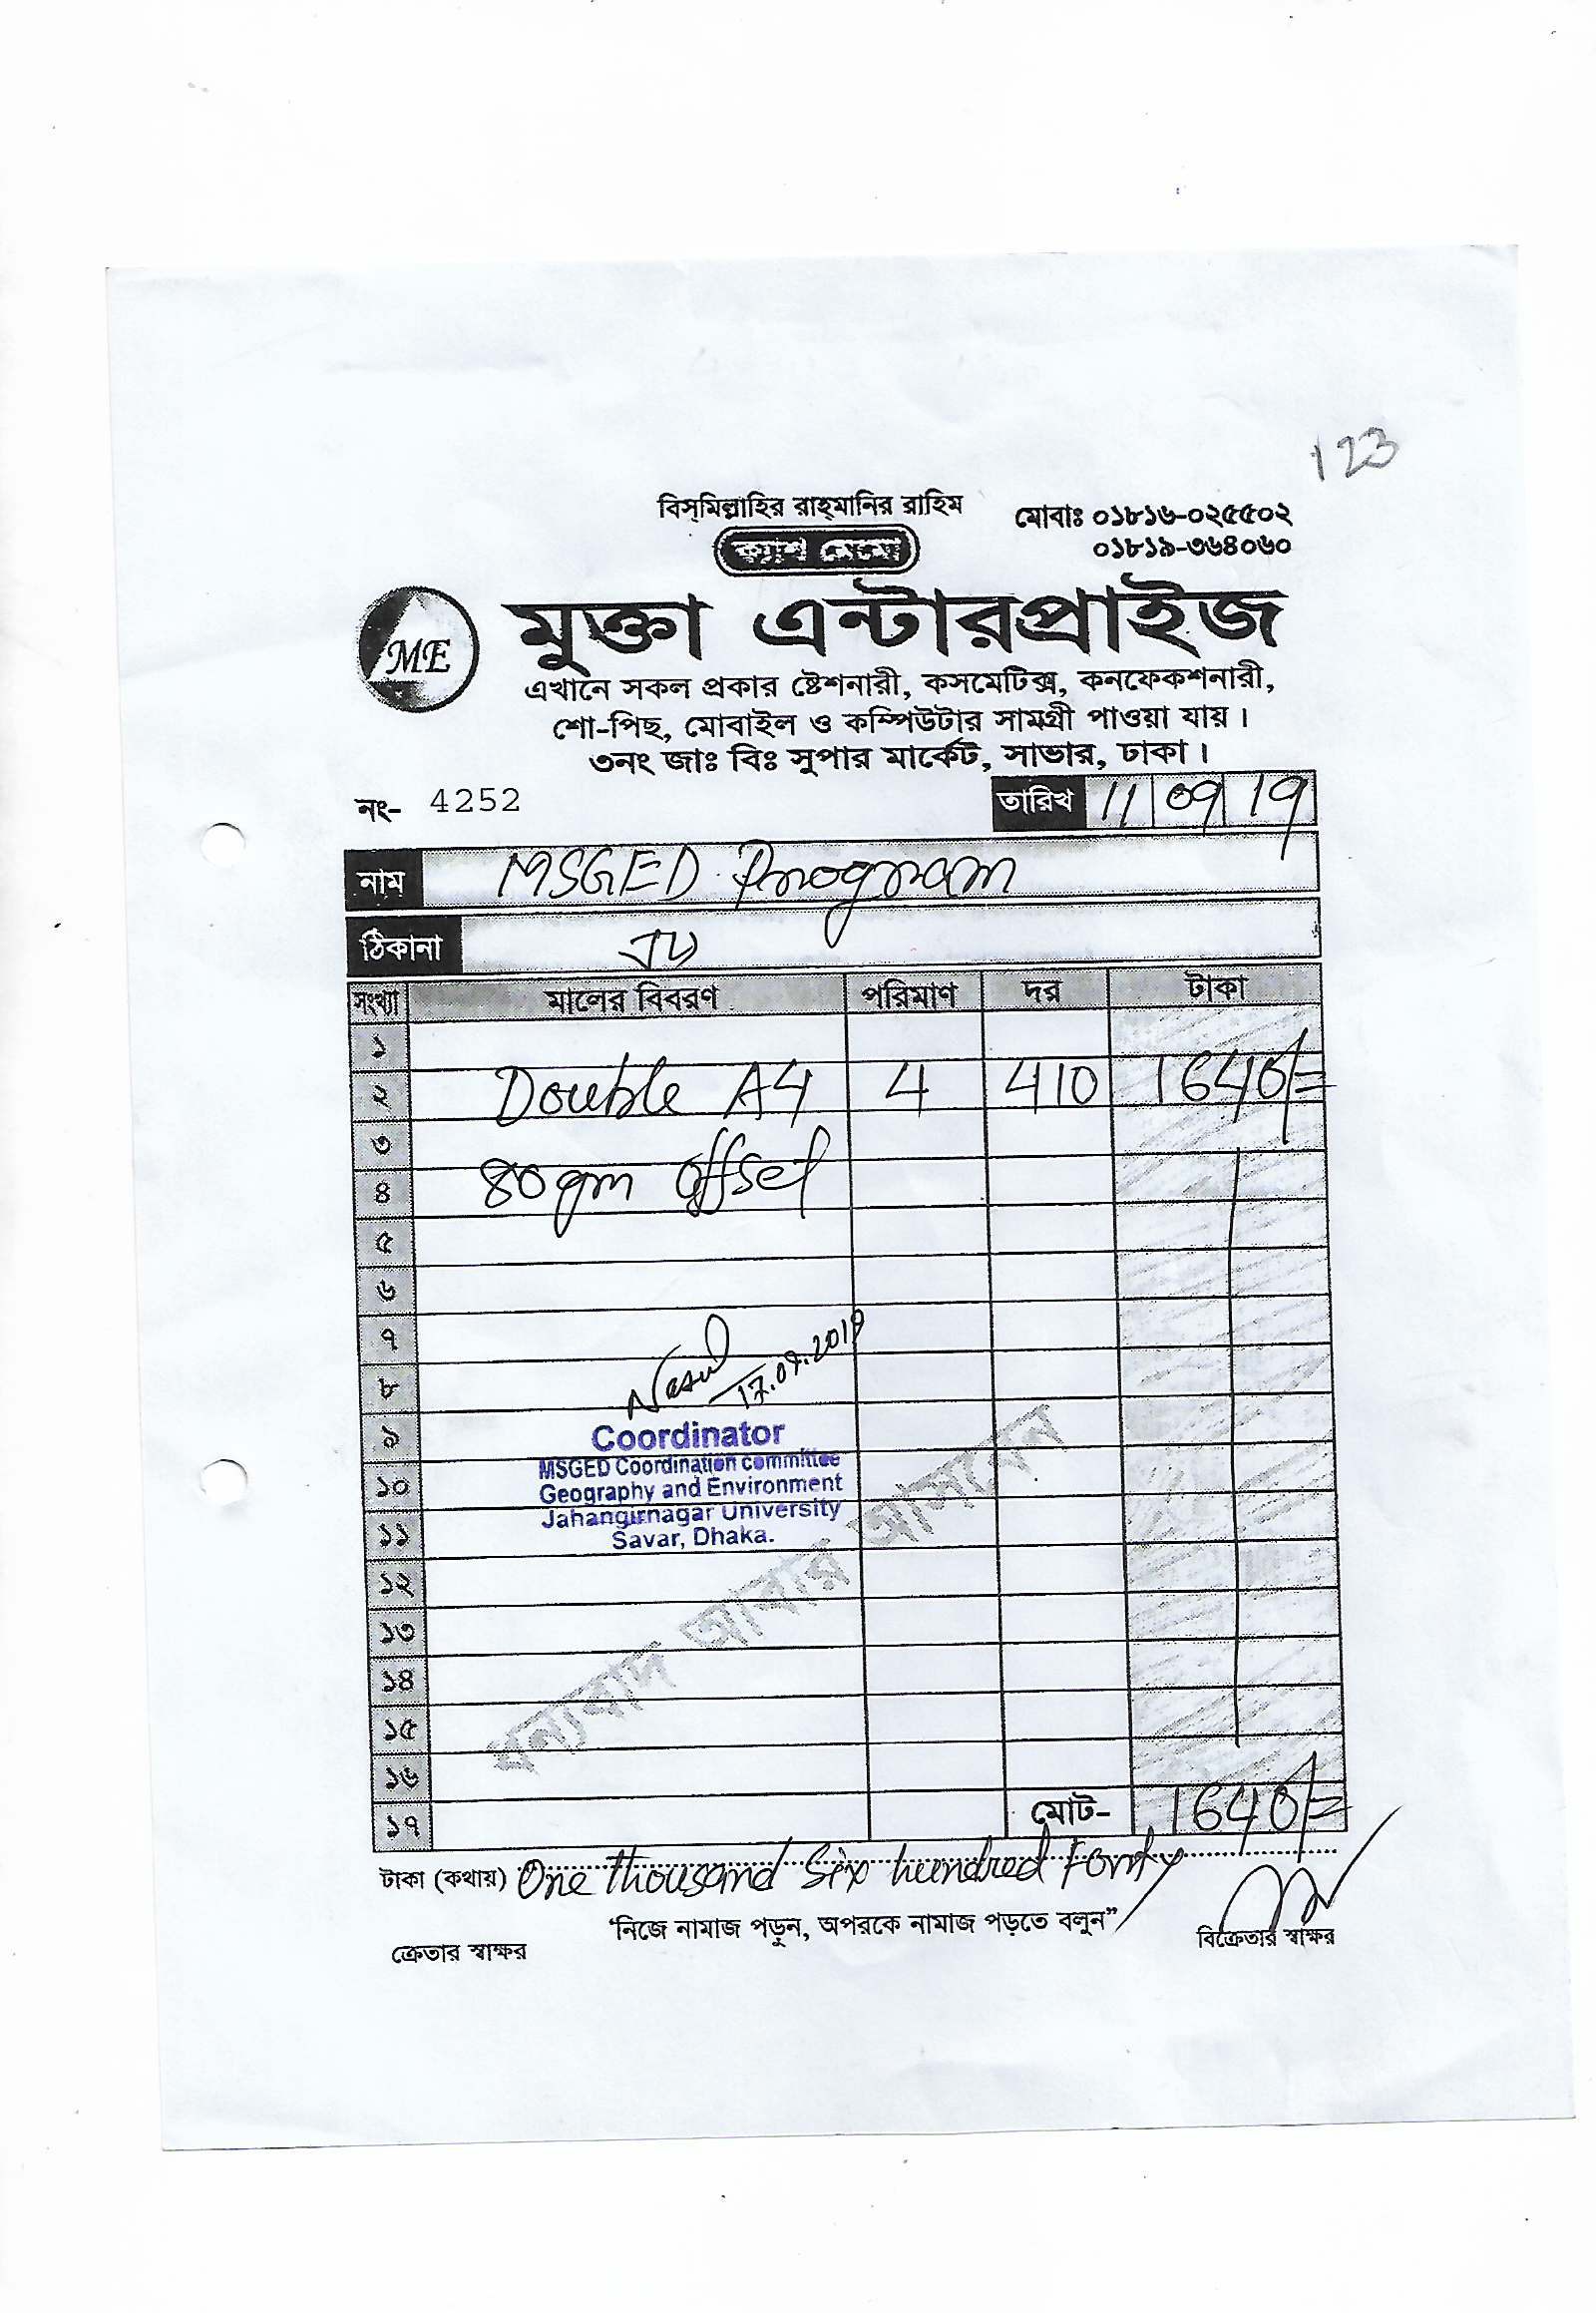 123
বিস্‌মিল্লাহির রাহ্‌মানির রাহিম
মোবাঃ ০১৮১৬-০২৫৫০২
০১৮১৯-৩৬৪০৬০
ক্যাশ মেমো
ME
মুক্তা এন্টারপ্রাইজ
এখানে সকল প্রকার ষ্টেশনারী, কসমেটিক্স, কনফেকশনারী,
শো-পিছ, মোবাইল ও কম্পিউটার সামগ্রী পাওয়া যায়।
৩নং জাঃ বিঃ সুপার মার্কেট, সাভার, ঢাকা।
নং- 4252 তারিখ 11/09/19
নাম MSGED Program
ঠিকানা JU
সংখ্যা মালের বিবরণ পরিমাণ দর টাকা
১
২ Double A4 4 410 1640/=
৩
৪ 80 gm offset
৫
৬
৭
৮ 17.09.2019
৯ Coordinator
১০ MSGED Coordination committee
Geography and Environment
১১ Jahangirnagar University
Savar, Dhaka.
১২
১৩
১৪
১৫
১৬
১৭ মোট- 1640/=
ধন্যবাদ আবার আসবেন
টাকা (কথায়) One thousand Six hundred Forty
"নিজে নামাজ পড়ুন, অপরকে নামাজ পড়তে বলুন"
ক্রেতার স্বাক্ষর বিক্রেতার স্বাক্ষর